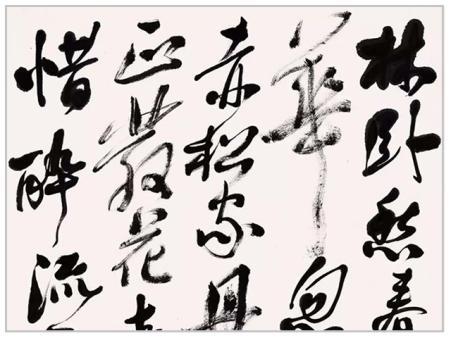 林卧愁春
華忽
赤松家丹
正發花
惜醉流